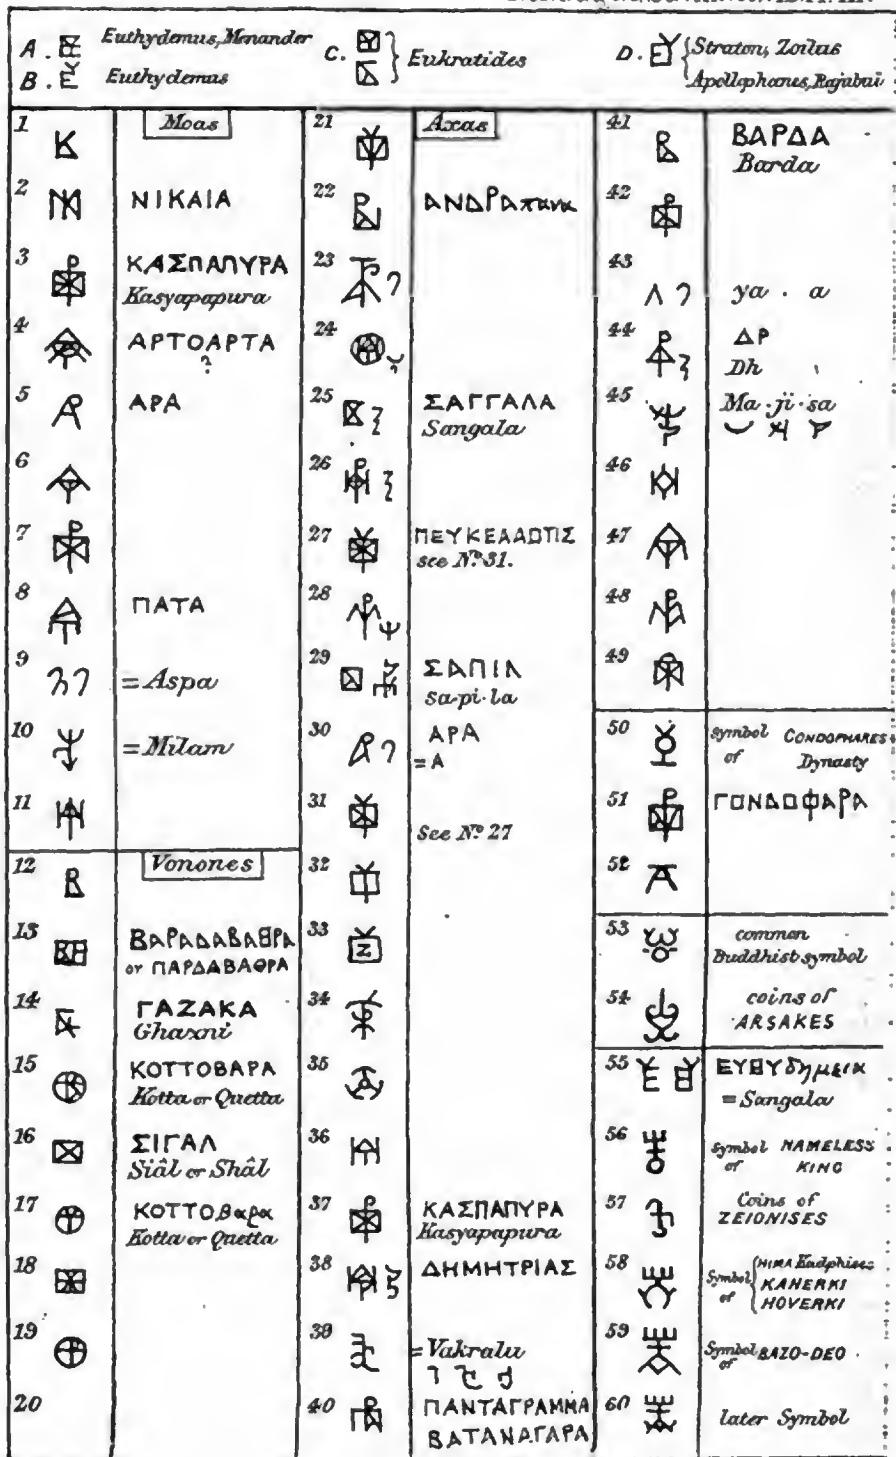 A. Euthydemus, Menander
B. Euthydemus
C. Eukratides
D. Straton, Zoilus
Apollophanes, Rajubul
1 Moas
2 ΝΙΚΑΙΑ
3 ΚΑΣΠΑΠΥΡΑ
Kasyapapura
4 ΑΡΤΟΑΡΤΑ
?
5 ΑΡΑ
6
7
8 ΠΑΤΑ
9 = Aspa
10 = Milam
11
12 Vonones
13 ΒΑΡΑΔΑΒΑΘΡΑ
or ΠΑΡΔΑΒΑΘΡΑ
14 ΓΑΖΑΚΑ
Ghazni
15 ΚΟΤΤΟΒΑΡΑ
Kotta or Quetta
16 ΣΙΓΑΛ
Siâl or Shâl
17 ΚΟΤΤΟβαρα
Kotta or Quetta
18
19
20
21 Axas
22 ΑΝΔΡΑπανα
23
24
25 ΣΑΓΓΑΛΑ
Sangala
26
27 ΠΕΥΚΕΛΑΩΤΙΣ
see No. 31.
28
29 ΣΑΠΙΛ
Sa-pi-la
30 ΑΡΑ
= A
31 See No. 27
32
33
34
35
36
37 ΚΑΣΠΑΠΥΡΑ
Kasyapapura
38 ΔΗΜΗΤΡΙΑΣ
38 = Vakralu
40 ΠΑΝΤΑΓΡΑΜΜΑ
ΒΑΤΑΝΑΓΑΡΑ
41 ΒΑΡΔΑ
Barda
42
43 ya . a
44 ΔΡ
Dh
45 Ma . ji . sa
46
47
48
49
50 symbol of CONDOPHARES
Dynasty
51 ΓΟΝΔΟΦΑΡΑ
52
53 common
Buddhist symbol
54 coins of
ARSAKES
55 ΕΥΘΥδημεια
= Sangala
56 symbol of NAMELESS
KING
57 Coins of
ZEIONISES
58 Symbol of HIMA Kadphises
KANERKI
HOVERKI
59 Symbol of BAZO-DEO
60 later Symbol